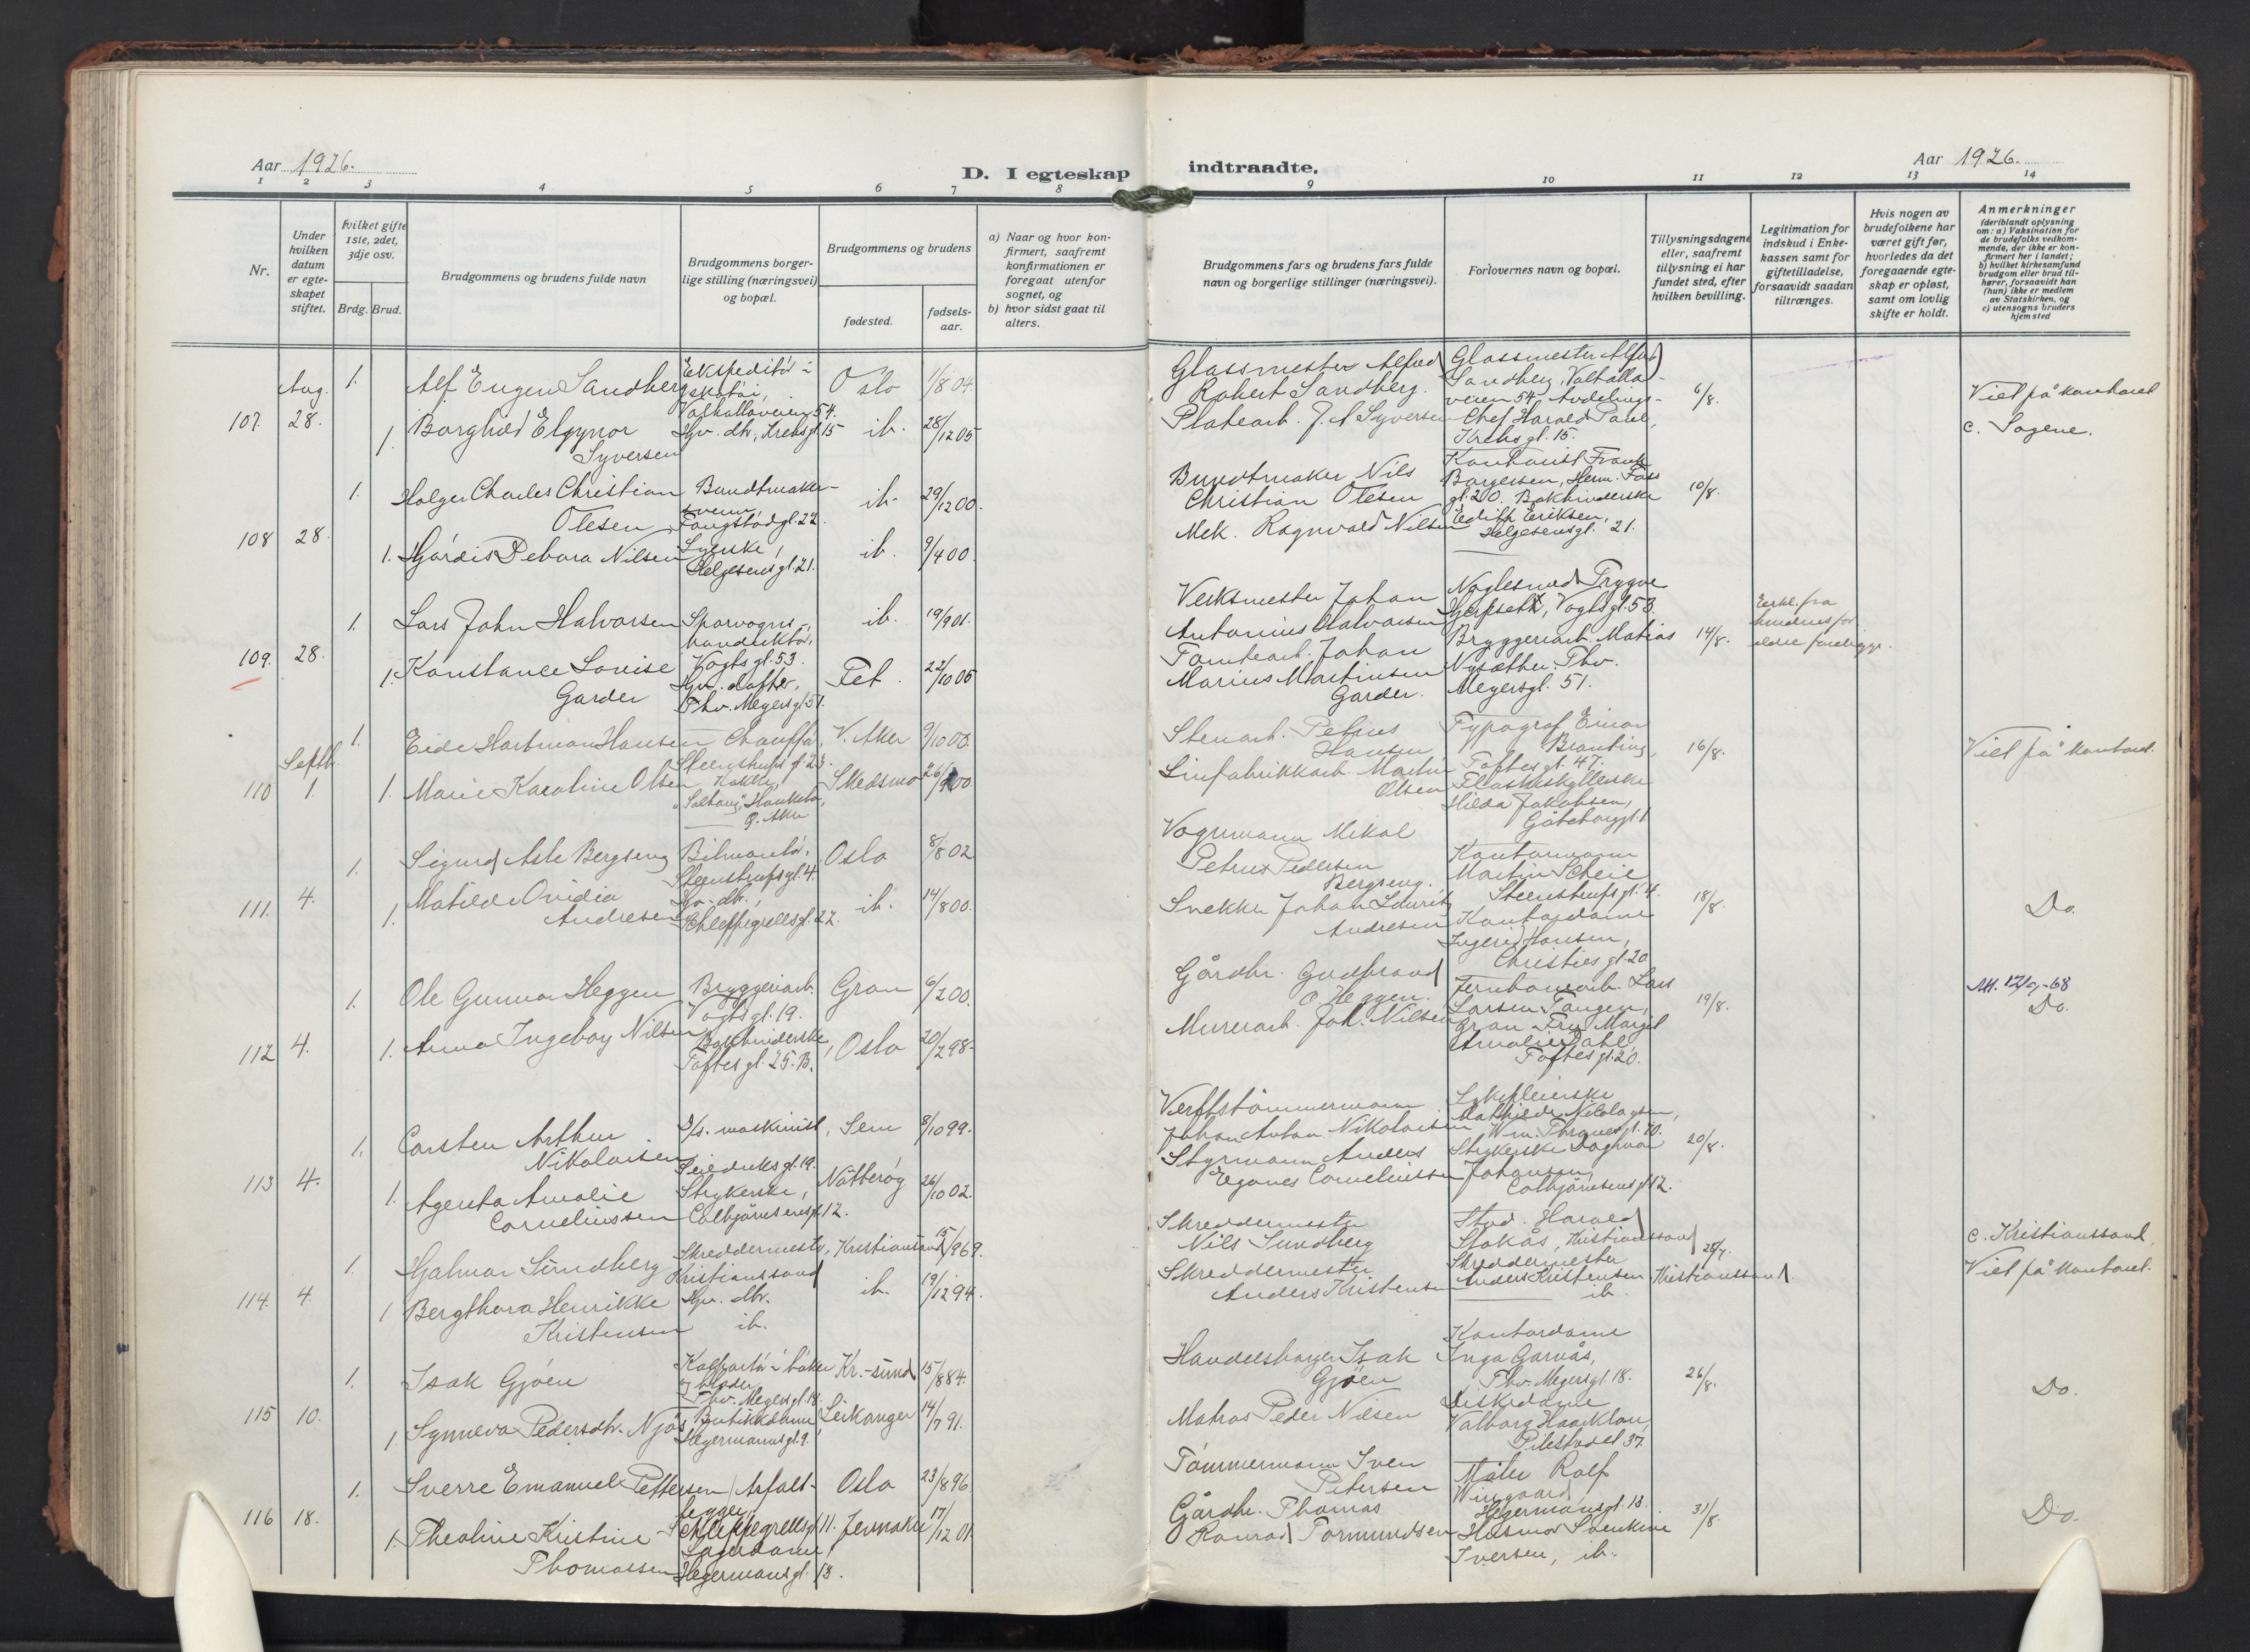 Aar 1926.
D. I egteskap
indtraadte.
Aar 1926.
1 2 3 4 5 6 7 8 9 10 11 12 13 14
Nr.
Under hvilken datum er egteskapet stiftet.
Hvilket gifte 1ste, 2det, 3dje osv.
Brdg. Brud.
Brudgommens og brudens fulde navn
Brudgommens borgerlige stilling (næringsvei) og bopæl.
Brudgommens og brudens
fødested.
fødselsaar.
a) Naar og hvor konfirmert, saafremt konfirmationen er foregaat utenfor sognet, og
b) hvor sidst gaat til alters.
Brudgommens fars og brudens fars fulde navn og borgerlige stillinger (næringsvei).
Forlovernes navn og bopæl.
Tillysningsdagene eller, saafremt tillysning ei har fundet sted, efter hvilken bevilling.
Legitimation for indskud i Enkekassen samt for giftetilladelse, forsaavidt saadan tiltrænges.
Hvis nogen av brudefolkene har været gift før, hvorledes da det foregaaende egteskap er opløst, samt om lovlig skifte er holdt.
Anmerkninger
(deriblandt oplysning om: a) Vaksination for de brudefolks vedkommende, der ikke er konfirmert her i landet; b) hvilket kirkesamfund brudgom eller brud tilhører, forsaavidt han (hun) ikke er medlem av Statskirken, og c) utensogns bruders hjemsted
107. Aug. 28.
1. Alf Eugen Sandberg
Ekspeditør i skotøi,
Valhallaveien 54.
Oslo 1/8 04.
Glassmester Alfred
Robert Sandberg.
Glassmester Alfred
Sandberg, Valhallaveien 54. Avdelings-
6/8.
Viet på kontoret
1. Borghild Elgynor
Syversen
Hjv. dtr., Krebsgt. 15
ib. 28/12 05
Platearb. J. A Syversen
Chef Harald Paul,
Krebsgt. 15.
c. Sagene.
108 28.
1. Holger Charles Christian
Olesen
Bundtmaker-
svenn,
Fougstadgt. 22.
ib. 29/12 00.
Bundtmaker Nils
Christian Olesen
Kontorist Frank
Borgersen, Herm. Foss
gt. 20. Bokbinderske
10/8.
1. Hjördis Debora Nilsen
Syerske,
Helgesensgt. 21.
ib. 9/4 00.
Mek. Ragnvald Nilsen
Edith Eriksen,
Helgesensgt. 21.
109. 28.
1. Lars John Halvorsen
Sporvogns-
konduktør,
Vogtsgt. 53.
ib. 19/9 01.
Verksmester Johan
Antonius Halvorsen
Trygve
Vogtsgt. 53.
14/8.
1. Konstance Lovise
Garder
Hjv. datter,
Thv. Meyersgt 51.
Fet. 22/10 05
Tomtearb. Johan
Marius Martinsen
Garder.
Bryggeriarb. Matias
Nysæther. Thv.
Meyersgt. 51.
110 Septb. 1.
1. Eide Hartman Hansen
Chauffør,
Steenstrups gt. 23.
V. Aker 9/10 00.
Stenarb. Petrus
Hansen
Typograf Einar
Branting,
Toftesgt. 47.
16/8.
Viet på kontoret.
1. Marie Karoline Olsen
Ø. Aker
Skedsmo 26/9 00
Linfabrikkarb. Martin
Olsen
Flaskeskyllerske
Hilda Jakobsen,
Göteborggt. 1
111. 4.
1. Sigurd Asle Bergseng
Bilmontør,
Steenstrupsgt. 4.
Oslo 8/8 02
Vognmann Mikal
Petrus Pedersen
Bergseng.
Kontormann
Martin Scheie
Steenstrupsgt. 4.
18/8.
Do.
1. Matilde Ovidia
Andresen
Hjv. dtr.,
Schleppegrellsgt. 27.
ib. 14/8 00.
Snekker Johan Lauritz
Andresen
Kontordame
Ingerid Hansen,
Christies gt. 20
112 4.
1. Ole Gunnar Heggen
Bryggeriarb.
Vogtsgt. 19.
Gran 6/2 00.
Gårdbr. Gudbrand
O. Heggen.
Jernbanearb. Lars
Larsen Tangen,
Gran. Fru Margit
19/8.
Att. 12/9-68
Do.
1. Anna Ingeborg Nilsen
Bokbinderske,
Toftes gt. 25. B.
Oslo 20/2 98.
Murerarb. Joh. Nilsen
Amalie Dahl,
Toftes gt. 20.
113 4.
1. Carsten Arthur
Nikolaisen
maskinist,
Seieduksgt. 19.
Sem 8/10 99.
Verftstømmermann
Johan Anton Nikolaisen
Sykepleierske
Mathilde Nikolaysen,
Wm. Thranes gt. 70.
20/8.
1. Agenta Amalie
Corneliussen
Strykerske,
Colbjörnsensgt. 12.
Nötteröy 26/10 02.
Styrmann Anders
Corneliussen
Strykerske Dagmar
Johansen,
Colbjörnsensgt. 12.
114. 4.
1. Hjalmar Sundberg
Skreddermester,
Kristianssand
Kristianssand 15/9 69.
Skreddermester
Nils Sundberg
Stud. Harald
Stakås, Kristianssand
c. Kristianssand.
Viet på kontoret.
1. Bergthora Henrikke
Kristensen
Hjv. dtr.
ib.
ib. 19/12 94.
Skreddermester
Anders Kristensen
Skreddermester
Anders Kristensen
ib.
Kristianssand.
115 10.
1. Isak Gjöen
Kolportör i böker
og blader,
Thv. Meyersgt. 18.
Kr.-sund 15/8 84.
Handelsborger Isak
Gjöen
Kontordame
Inga Garnås,
Thv. Meyersgt. 18.
26/8.
Do.
1. Synneva Pedersdtr. Njøs
Butikkdame
Hegermannsgt. 9.
Leikanger 14/7 91.
Matros Peder Nilsen
Diskedame
Valborg
Pilestredet 37.
116 18.
1. Sverre Emanuel Pettersen
Asfalt-
legger,
Schleppegrellsgt. 11.
Oslo 23/8 96.
Tömmermann Sven
Petersen
Maler Rolf
Wingaard
Hegermansgt. 13.
31/8.
Do.
1. Theoline Kristine
Thomassen
Lagerdame,
Hegermansgt. 13.
Jevnaker 17/12 01
Gårdbr. Thomas
Konrad Tormundsen
Iversen, ib.